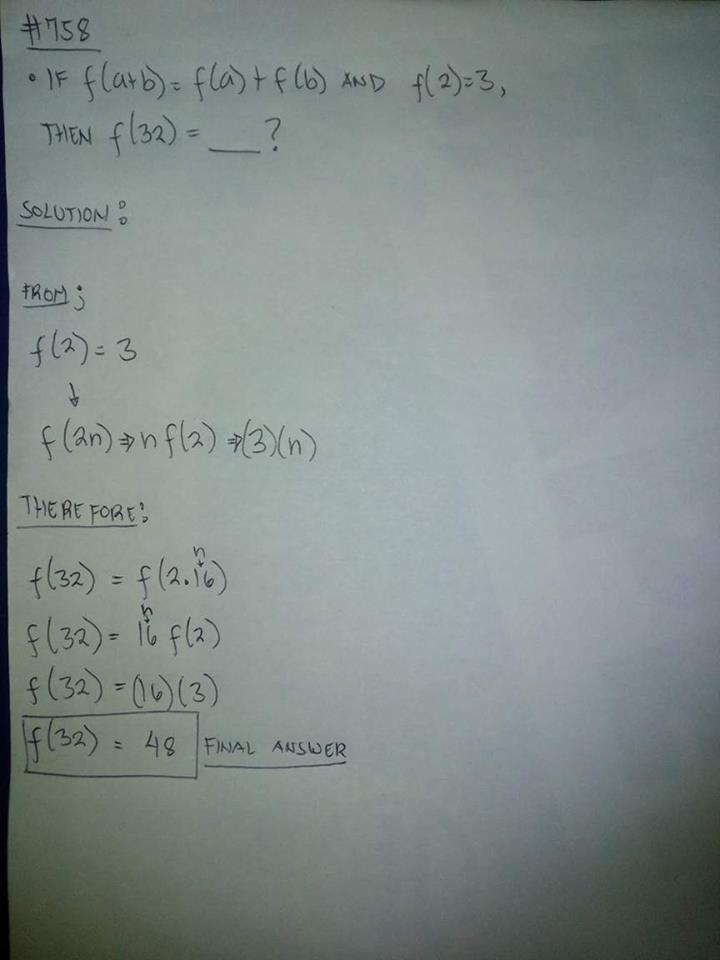 #758
• IF f(a+b) = f(a) + f(b) AND f(2)=3,
THEN f(32) = ___ ?
SOLUTION:
FROM;
f(2) = 3
↓
f(2n) ⇒ n f(2) ⇒ (3)(n)
THEREFORE:
n
f(32) = f(2.16)
n
f(32) = 16 f(2)
f(32) = (16)(3)
f(32) = 48 FINAL ANSWER